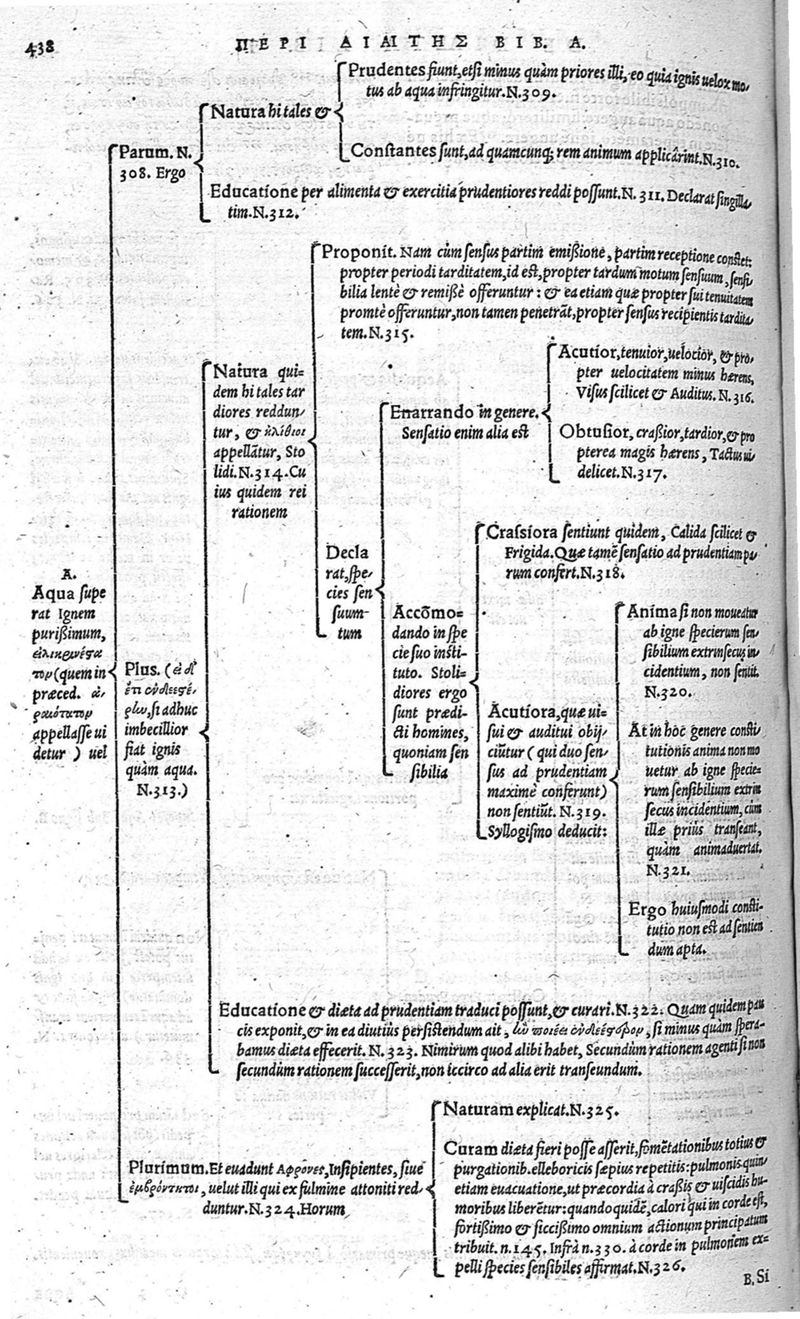 438
ΠΕΡΙ ΔΙΑΙΤΗΣ ΒΙΒ. Α.
A.
Aqua supe
rat Ignem
purißimum,
(quem in
præced.
appellasse ui
detur ) uel
Parum. N.
308. Ergo
Natura hi tales &
Prudentes fiunt, etsi minus quàm priores illi, eo quia ignis uelox mo-
tus ab aqua infringitur. N. 309.
Constantes sunt, ad quamcunq; rem animum applicârint. N. 310.
Educatione per alimenta & exercitia prudentiores reddi possunt. N. 311. Declarat singilla
tim. N. 312.
Plus. (
ἔτι
si adhuc
imbecillior
fiat ignis
quàm aqua.
N. 313.)
Natura qui=
dem hi tales tar
diores reddun-
tur, & ἠλίθιοι
appellātur, Sto
lidi. N. 314. Cu
ius quidem rei
rationem
Proponit. Nam cùm sensus partim emißione, partim receptione constet:
propter periodi tarditatem, id est, propter tardum motum sensuum, sensi
bilia lentè & remißè offeruntur: & ea etiam quæ propter sui tenuitatem
promtè offeruntur, non tamen penetrāt, propter sensus recipientis tardita
tem. N. 315.
Decla
rat, spe-
cies sen
suum-
tum
Enarrando in genere.
Sensatio enim alia est
Acutior, tenuior, uelocior, & pro-
pter uelocitatem minus hærens,
Visus scilicet & Auditus. N. 316.
Obtusior, craßior, tardior, & pro
pterea magis hærens, Tactus ui
delicet. N. 317.
Accōmo=
dando in spe
cie suo insti-
tuto. Stoli-
diores ergo
sunt prædi-
cti homines,
quoniam sen
sibilia
Craßiora sentiunt quidem, Calida scilicet &
Frigida. Quæ tamē sensatio ad prudentiam pa-
rum confert. N. 318.
Acutiora, quæ ui-
sui & auditui obij-
ciūtur ( qui duo sen-
sus ad prudentiam
maximè conferunt)
non sentiūt. N. 319.
Syllogismo deducit:
Anima si non moueatur
ab igne specierum sen-
sibilium extrinsecus in-
cidentium, non sentit.
N. 320.
At in hoc genere consti-
tutionis anima non mo
uetur ab igne specie-
rum sensibilium extrin
secus incidentium, cùm
illæ priùs transeant,
quàm animaduertat.
N. 321.
Ergo huiusmodi consti-
tutio non est ad sentien
dum apta.
Educatione & diæta ad prudentiam traduci possunt, & curari. N. 322. Quam quidem pau
cis exponit, & in ea diutiùs persistendum ait, si minus quàm spera-
bamus diæta effecerit. N. 323. Nimirum quod alibi habet, Secundùm rationem agenti si non
secundùm rationem successerit, non iccirco ad alia erit transeundum.
Plurimum. Et euadunt Ἄφρονες, Insipientes, siue
ἐμβρόντητοι, uelut illi qui ex fulmine attoniti red-
duntur. N. 324. Horum
Naturam explicat. N. 325.
Curam diæta fieri posse asserit, fomētationibus totius &
purgationib. elleboricis sæpius repetitis: pulmonis quin-
etiam euacuatione, ut præcordia à craßis & uiscidis hu-
moribus liberētur: quando quidē, calori qui in corde est,
fortißimo & siccißimo omnium actionum principatum
tribuit. n. 145. Infrà n. 330. à corde in pulmonem ex-
pelli species sensibiles affirmat. N. 326.
B. Si